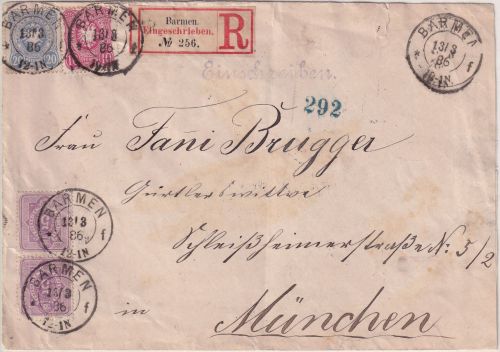 BARMEN
13/3
86
12-1N
* f
20
BARMEN
13/3
86
12-1N
* f
10
Barmen.
Eingeschrieben.
№ 256.
R
BARMEN
13/3
86
12-1N
* f
Einschreiben.
292
Frau Fani Brugger
Gürtlerswittwe
Schleißheimerstraße N: 5/2
in München
BARMEN
13/3
86
12-1N
* f
BARMEN
13/3
86
12-1N
* f